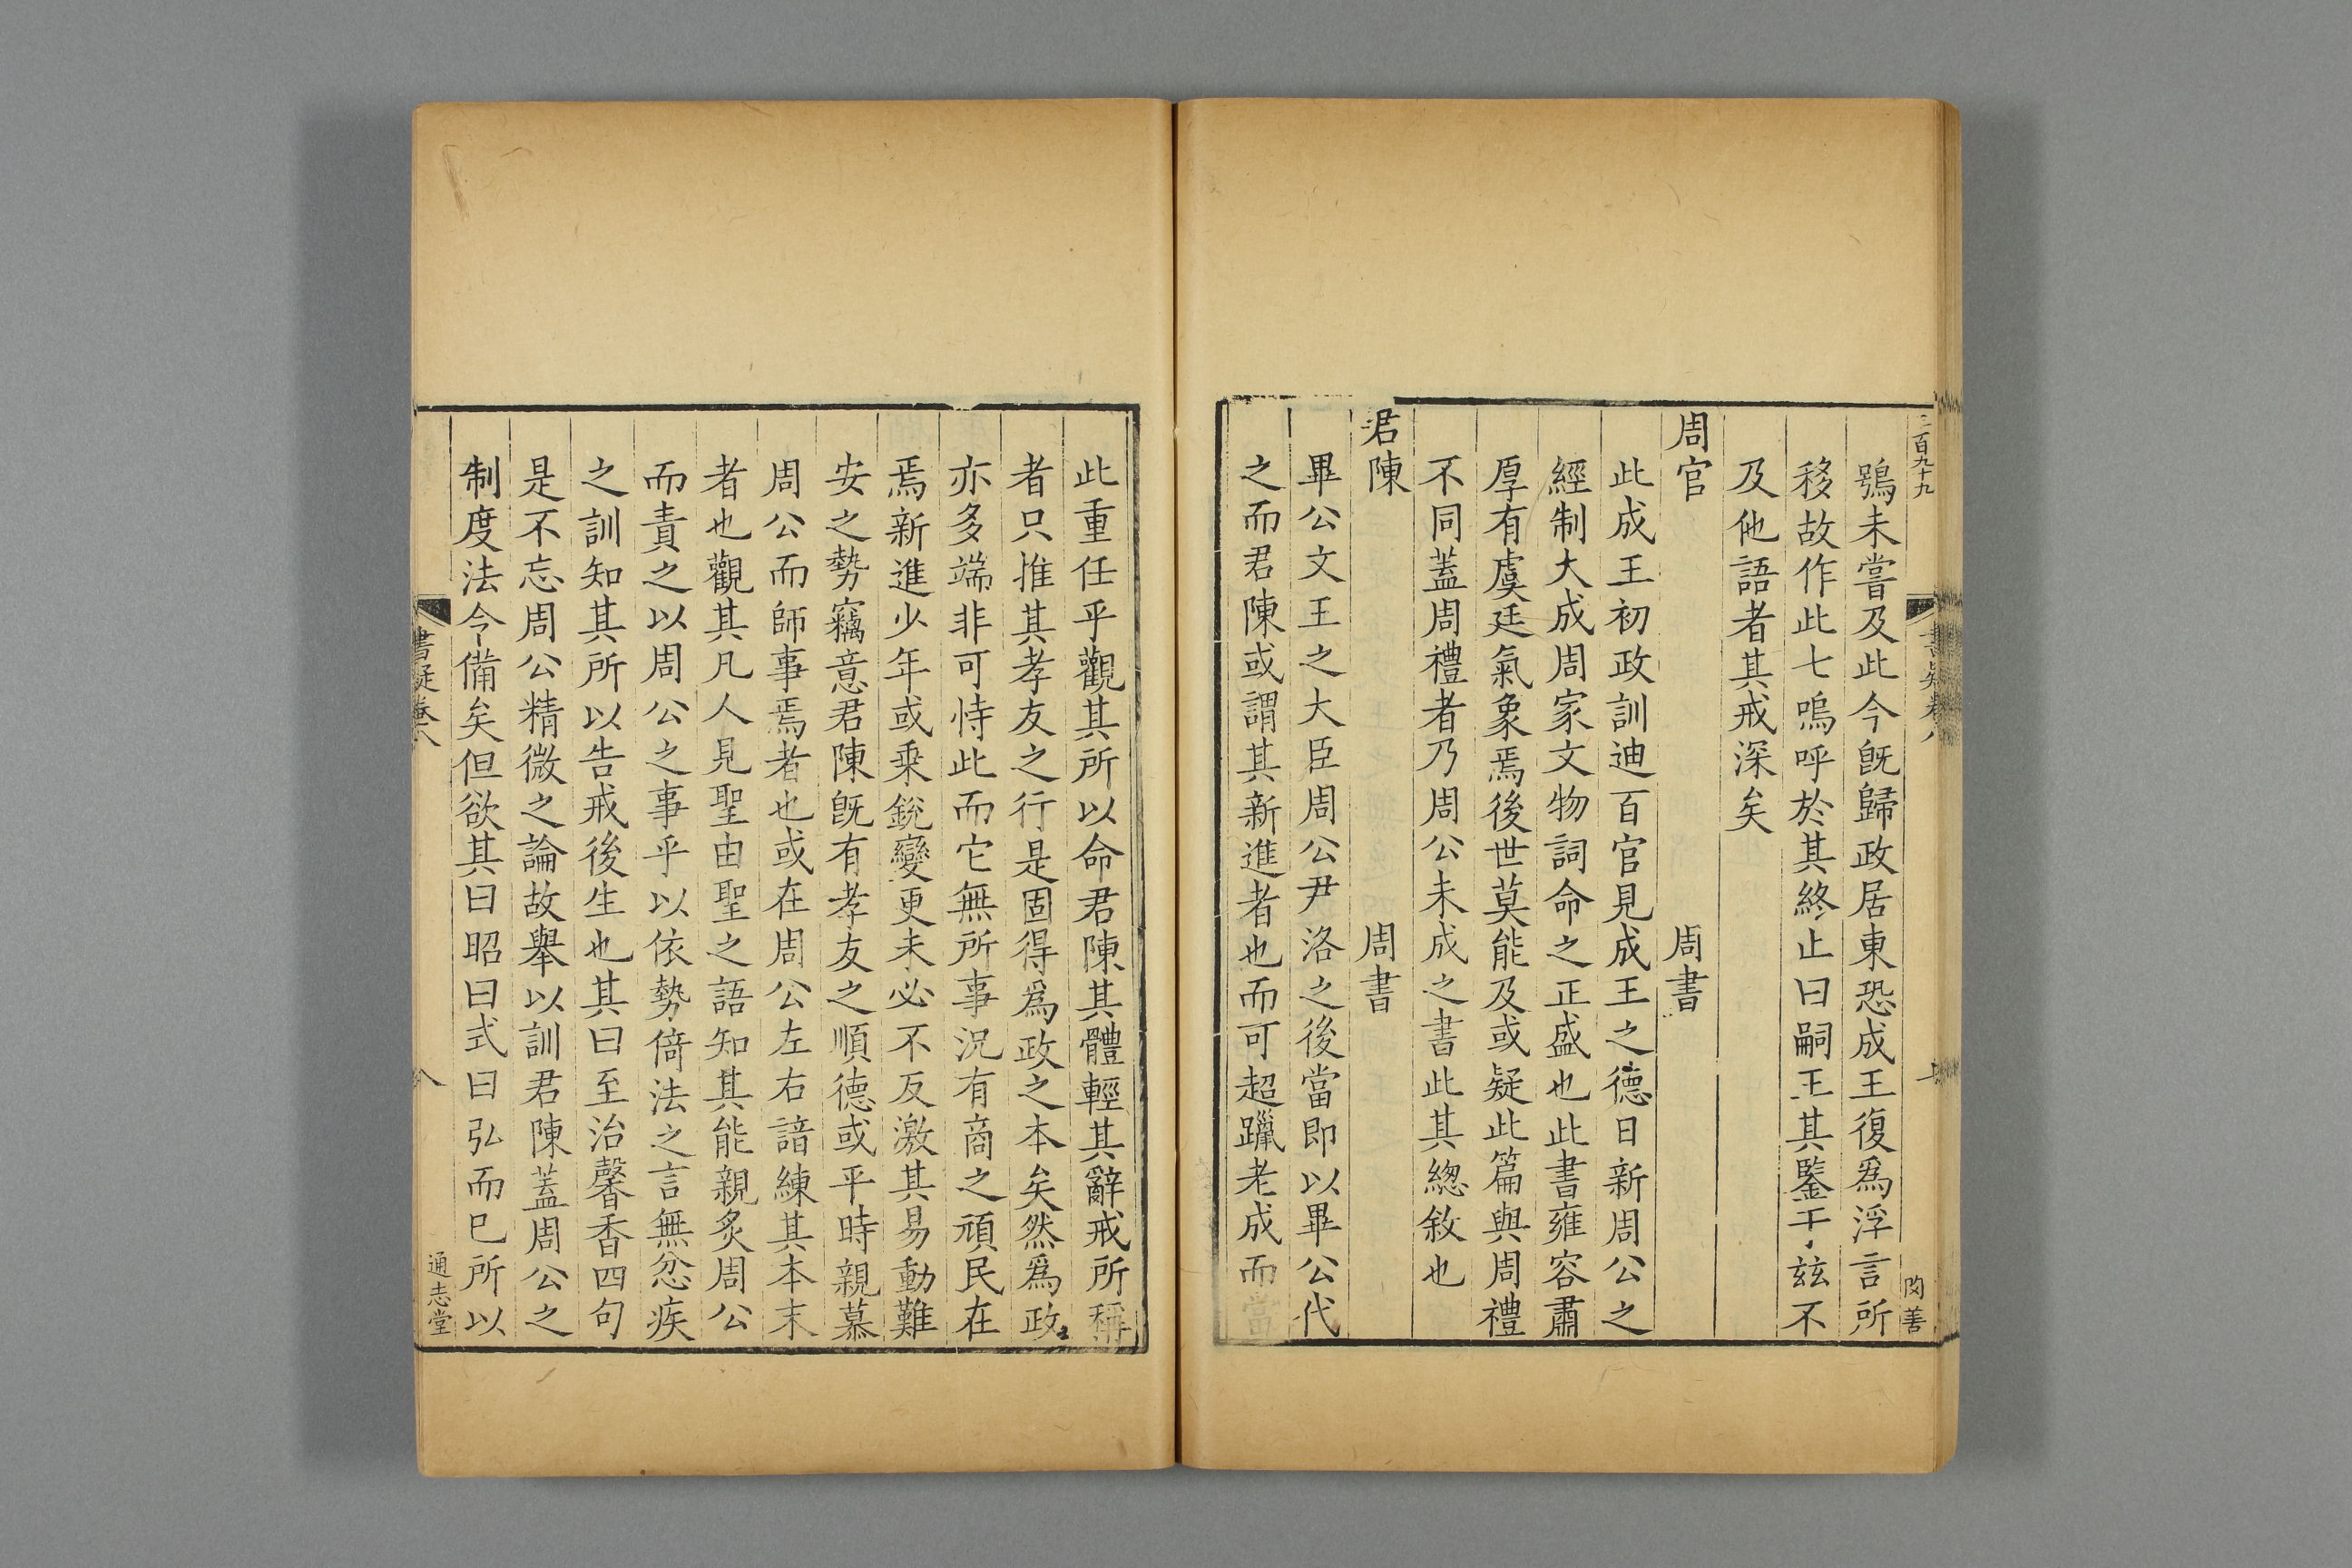 三百九十九
鴞未嘗及此今旣歸政居東恐成王復爲浮言所
移故作此七嗚呼於其終止曰嗣王其鑒于兹不
及他語者其戒深矣
周官 周書
此成王初政訓迪百官見成王之德日新周公之
經制大成周家文物詞命之正盛也此書雍容肅
厚有虞廷氣象焉後世莫能及或疑此篇與周禮
不同蓋周禮者乃周公未成之書此其緫敘也
君陳 周書
畢公文王之大臣周公尹洛之後當即以畢公代
之而君陳或謂其新進者也而可超躐老成而當
此重任乎觀其所以命君陳其體輕其辭戒所稱
者只推其孝友之行是固得爲政之本矣然爲政
亦多端非可恃此而它無所事況有商之頑民在
焉新進少年或乗銳變更未必不反激其易動難
安之勢竊意君陳旣有孝友之順德或平時親慕
周公而師事焉者也或在周公左右諳練其本末
者也觀其凡人見聖由聖之語知其能親炙周公
而責之以周公之事乎以依勢倚法之言無忿疾
之訓知其所以告戒後生也其曰至治馨香四句
是不忘周公精微之論故舉以訓君陳蓋周公之
制度法令備矣但欲其曰昭曰式曰弘而已所以
書疑卷八
八
通志堂